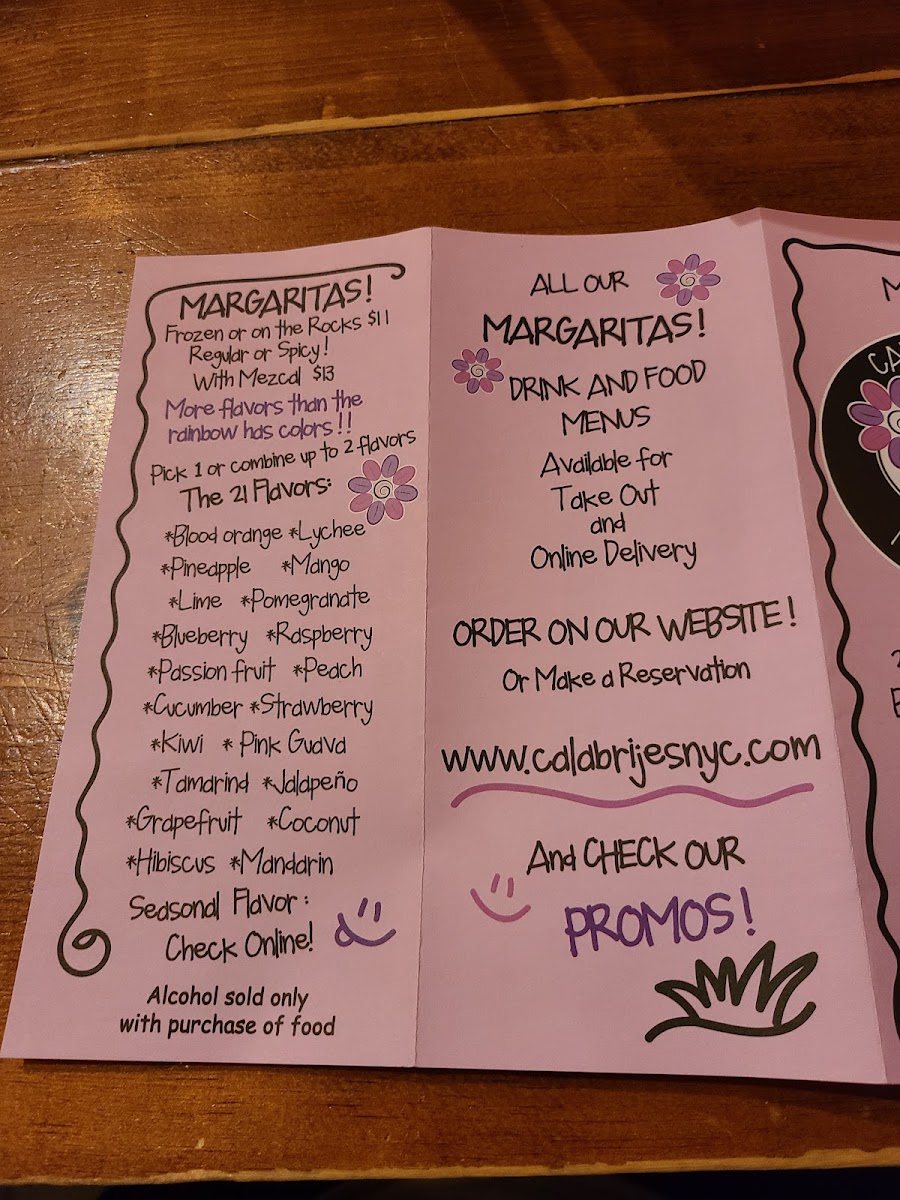 MARGARITAS!
Frozen or on the Rocks $11
Regular or Spicy!
With Mezcal $13
More flavors than the
rainbow has colors!!
Pick 1 or combine up to 2 flavors
The 21 Flavors:
*Blood orange *Lychee
*Pineapple *Mango
*Lime *Pomegranate
*Blueberry *Raspberry
*Passion fruit *Peach
*Cucumber *Strawberry
*Kiwi * Pink Guava
*Tamarind *Jalapeño
*Grapefruit *Coconut
*Hibiscus *Mandarin
Seasonal Flavor:
Check Online!
Alcohol sold only
with purchase of food
ALL OUR
MARGARITAS!
DRINK AND FOOD
MENUS
Available for
Take Out
and
Online Delivery
ORDER ON OUR WEBSITE!
Or Make a Reservation
www.calabrijesnyc.com
And CHECK OUR
PROMOS!